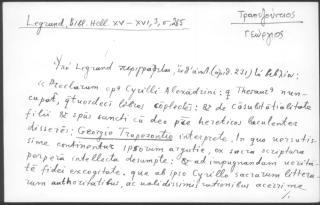 Legrand, Bibl. Hell. XV-XVI, 3, σ. 265
Τραπεζούντιος
Γεώργιος
Legrand περιγράφει, (αρ. 231) τὸ βιβλίον:
"Preclarum opus Cyrilli Alexãdrini: q Thesaur' nun-
cupat, quordeci libros cõplectẽs: & de cõsubstãtialitate
filii & spũs sancti cũ deo pře hereticos luculenter
disserẽs: Georgio Trapezontio interprete. In quo versutis-
sime continentur ipsorum argutie, ex sacra scriptura
perperã intellecta desumpte: & ad impugnandam verita-
tẽ fidei excogitate, que ab ipso Cyrillo sacrarum littera-
rum authoritatibus, ac validissimis rationibus acerrime